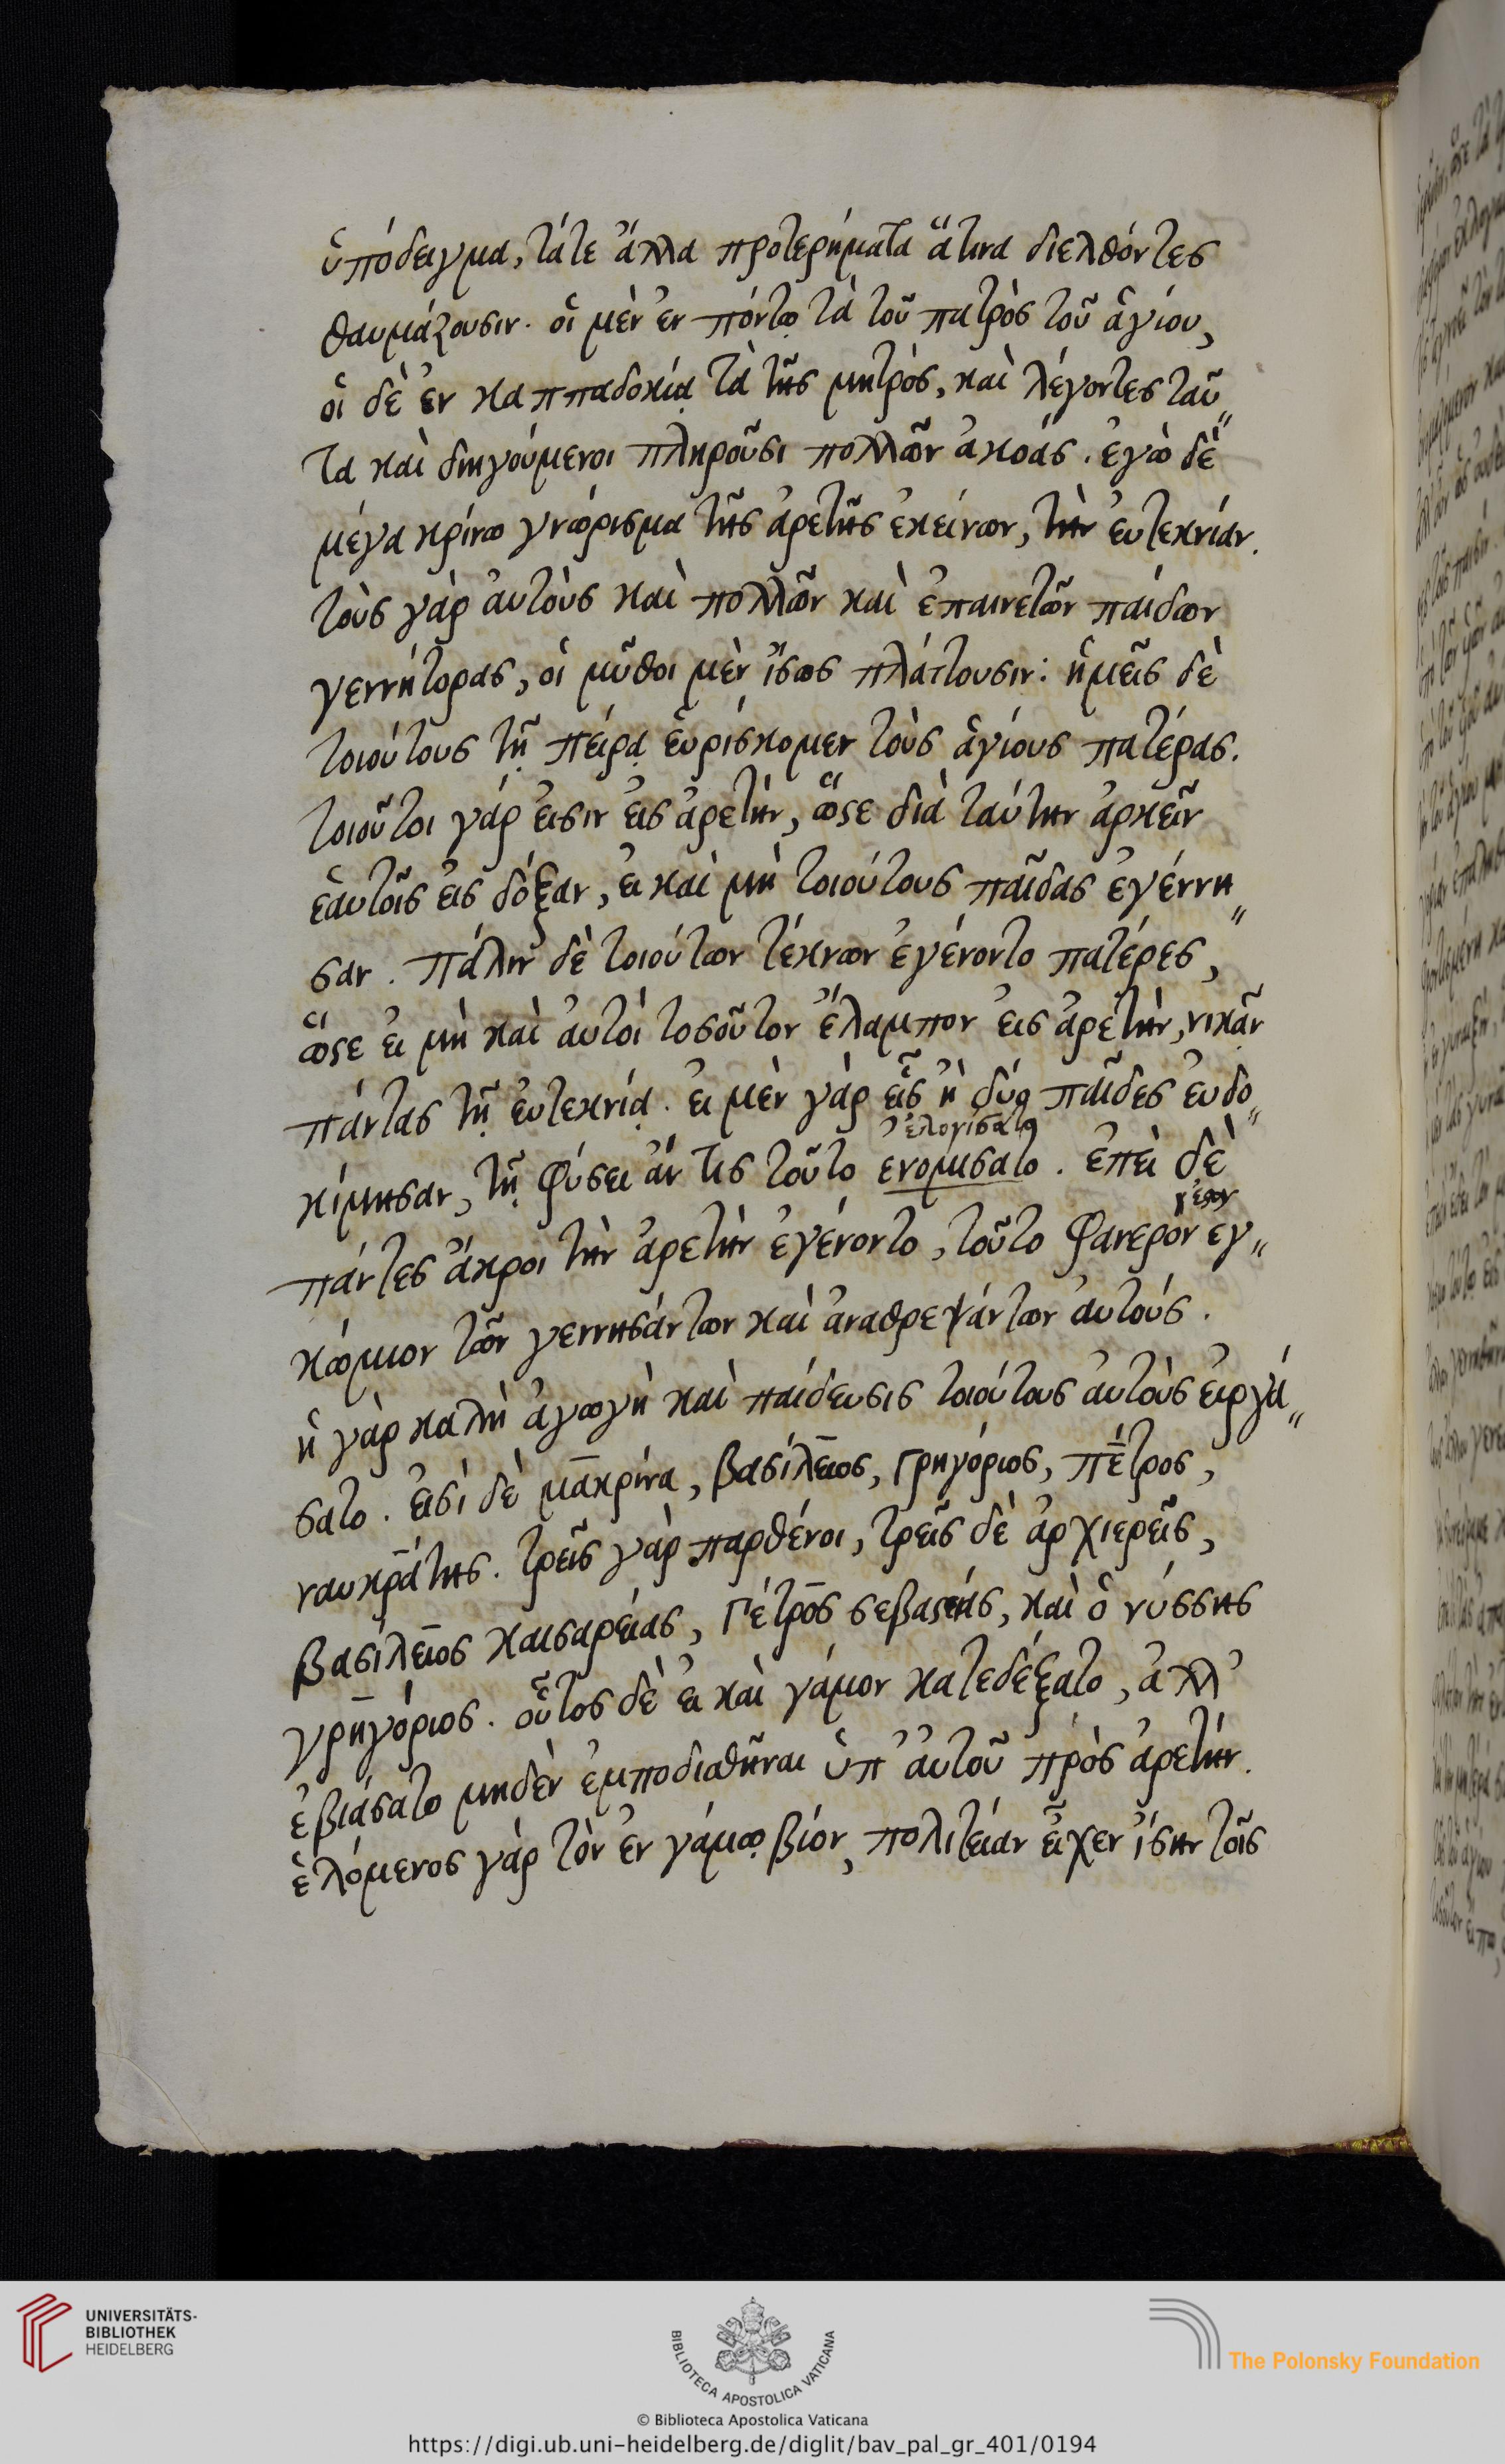 ὑπόδειγμα, τάτε ἄλλα προτερήματα ἅτινα διελθόντες
θαυμάζουσιν· οἱ μὲν ἐν πόντῳ τὰ τοῦ πατρὸς τοῦ ἁγίου,
οἱ δὲ ἐν καππαδοκίᾳ τὰ τῆς μητρὸς, καὶ λέγοντες ταῦ
τα καὶ διηγούμενοι πληροῦσι πολλῶν ἀκοάς. ἐγὼ δὲ
μέγα κρίνω γνώρισμα τῆς ἀρετῆς ἐκείνων, τὴν εὐτεκνίαν.
τοὺς γὰρ αὐτοὺς καὶ πολλῶν καὶ ἐπαινετῶν παίδων
γεννήτορας, οἱ μῦθοι μὲν ἴσως πλάττουσιν: ἡμεῖς δὲ
τοιούτους τῇ πείρᾳ εὑρίσκομεν τοὺς ἁγίους πατέρας.
τοιοῦτοι γάρ εἰσιν εἰς ἀρετὴν, ὥστε διὰ ταύτην ἀρκεῖν
ἑαυτοῖς εἰς δόξαν, εἰ καὶ μὴ τοιούτους παῖδας ἐγέννη
σαν. πάλιν δὲ τοιούτων τέκνων ἐγένοντο πατέρες,
ὥστε εἰ μὴ καὶ αὐτοὶ τοσοῦτον ἔλαμπον εἰς ἀρετὴν, νικᾶν
πάντας τῇ εὐτεκνίᾳ. εἰ μὲν γὰρ εἷς ἢ δύο παῖδες εὐδο
ἐλογίσατο
κίμησαν, τῇ φύσει ἄν τις τοῦτο ενομισατο. ἐπεὶ δὲ
πάντες ἄκροι τὴν ἀρετὴν ἐγένοντο, τοῦτο φανερὸν ἐγ
κώμιον τῶν γεννησάντων καὶ ἀναθρεψάντων αὐτούς.
ἡ γὰρ καλὴ ἀγωγὴ καὶ παίδευσις τοιούτους αὐτοὺς εἰργά
σατο. εἰσὶ δὲ μακρίνα, βασίλειος, γρηγόριος, πέτρος,
ναυκράτης. τρεῖς γὰρ παρθένοι, τρεῖς δὲ ἀρχιερεῖς,
βασίλειος καισαρείας, πέτρος σεβαστείας, καὶ ὁ νύσσης
γρηγόριος. οὗτος δὲ εἰ καὶ γάμον κατεδέξατο, ἀλλ'
ἐβιάσατο μηδὲν ἐμποδιαθῆναι ὑπ' αὐτοῦ πρὸς ἀρετήν.
ἑλόμενος γὰρ τὸν ἐν γάμῳ βίον, πολιτείαν εἶχεν ἴσην τοῖς
UNIVERSITÄTS-
BIBLIOTHEK
HEIDELBERG
BIBLIOTECA APOSTOLICA VATICANA
The Polonsky Foundation
© Biblioteca Apostolica Vaticana
https://digi.ub.uni-heidelberg.de/diglit/bav_pal_gr_401/0194